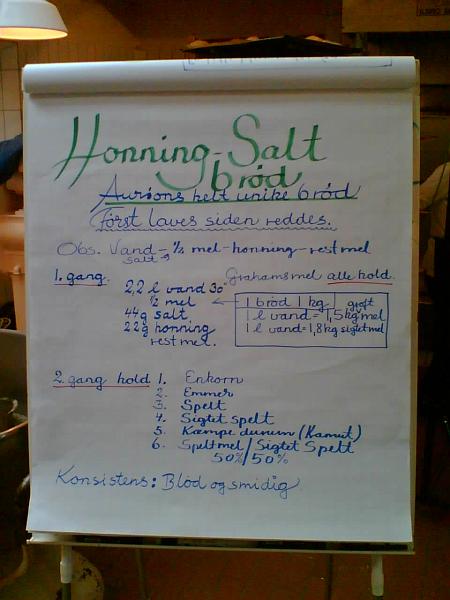 Honning-Salt
bröd
Aurions helt unike bröd
Först laves siden reddes.
Obs. Vand - 1/2 mel - honning - rest mel
salt →
1. gang. Grahamsmel alle hold.
2,2 l vand 30°
1/2 mel
44g salt
22g honning
rest mel.
1 bröd 1 kg groft
1 l vand = 1,5 kg mel
1 l vand = 1,8 kg sigtet mel
2. gang hold 1. Enkorn
2. Emmer
3. Spelt
4. Sigtet spelt
5. Kæmpe durum (Kamut)
6. Speltmel/Sigtet Spelt
50%/50%
Konsistens: Blöd og smidig